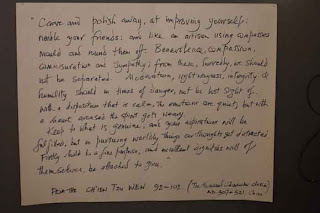 "Carve and polish away, at improving yourself;
needle your friends; and like an artisan using compasses
mould and round them off. Benevolence, compassion,
commiseration and sympathy; from these, surely, we should
not be separated. Moderation, righteousness, integrity &
humility should in times of danger, not be lost sight of.
with a disposition that is calm, the emotions are quiet; but with
a heart aroused the spirit gets weary.
Keep to what is genuine, and your aspirations will be
fulfilled, but in pursuing worldly things our thoughts get distracted
Firmly hold to a fine posture, and excellent dignities will of
themselves, be attached to you."
FROM THE CH'IEN TZU WEN 92-102 (The thousand character classic)
AD 507-521, China